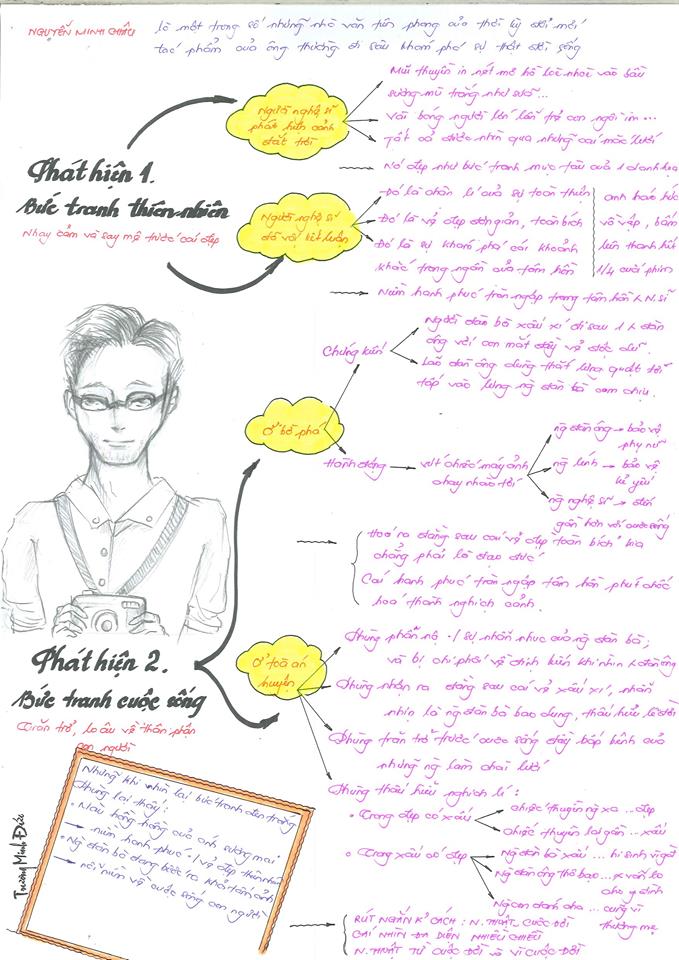 NGUYỄN MINH CHÂU
là một trong số những nhà văn tiên phong của thời kỳ đổi mới
tác phẩm của ông thường đi sâu khám phá sự thật đời sống
Người nghệ sĩ
phát hiện cảnh
đắt trời
Mũi thuyền in nét mơ hồ loè nhoè vào bầu
sương mù trắng như sữa...
Vài bóng người lớn lẫn trẻ con ngồi im...
Tất cả được nhìn qua những cái mắc lưới
Nó đẹp như bức tranh mực tàu của 1 danh họa
Phát hiện 1.
Bức tranh thiên nhiên
Nhạy cảm và say mê trước cái đẹp
Người nghệ sĩ
đã vội kết luận
Đó là chân lí của sự toàn thiện
Đó là vẻ đẹp đơn giản, toàn bích
Đó là sự khám phá cái khoảnh
khắc trong ngần của tâm hồn
anh háo hức
vồ vập, bấm
liên thanh hết
1/4 cuối phim
Niềm hạnh phúc tràn ngập trong tâm hồn N.sĩ
Ở bờ phá
Chứng kiến
Người đàn bà xấu xí đi sau 1 đàn
ông với con mắt đầy vẻ độc dữ.
Lão đàn ông dùng thắt lưng quật tới
tấp vào lưng ng đàn bà cam chịu.
Hành động
vứt chiếc máy ảnh
chạy nhào tới
ng đàn ông → bảo vệ
phụ nữ
ng lính → bảo vệ
kẻ yếu
ng nghệ sĩ → đến
gần hơn với cuộc sống
Hoá ra đằng sau cái vẻ đẹp "toàn bích" kia
chẳng phải là đạo đức
Cái hạnh phúc tràn ngập tâm hồn phút chốc
hoá thành nghịch cảnh.
Phát hiện 2.
Bức tranh cuộc sống
Trăn trở, lo âu về thân phận
con người
Ở toà án
huyện
Phùng phẫn nộ sự nhẫn nhục của ng đàn bà;
và bị chi phối về định kiến khi nhìn đàn ông
Phùng nhận ra đằng sau cái vẻ xấu xí, nhẫn
nhịn là ng đàn bà bao dung, thấu hiểu lẽ đời
Phùng trăn trở trước cuộc sống đầy bấp bênh của
những ng làm chài lưới
Phùng thấu hiểu nghịch lí:
• Trong đẹp có xấu
chiếc thuyền ng xa... đẹp
chiếc thuyền lại gần... xấu
• Trong xấu có đẹp
Ng đàn bà xấu... hi sinh vì gđ
Ng đàn ông thô bạo... vẫn lo
cho gđình
Ng con đánh cha... cũng vì
thương mẹ
RÚT NGẮN K' CÁCH: N.THUẬT _ CUỘC ĐỜI
CÁI NHÌN ĐA DIỆN NHIỀU CHIỀU
N.THUẬT TỪ CUỘC ĐỜI VÀ VÌ CUỘC ĐỜI
Những khi nhìn lại bức tranh đen trắng
Phùng lại thấy:
• Màu hồng hồng của ánh sương mai
→ niềm hạnh phúc vẻ đẹp thiên nhiên
• Ng đàn bà đang bước ra khỏi tấm ảnh
→ nỗi niềm về cuộc sống con người
Trương Minh Đức